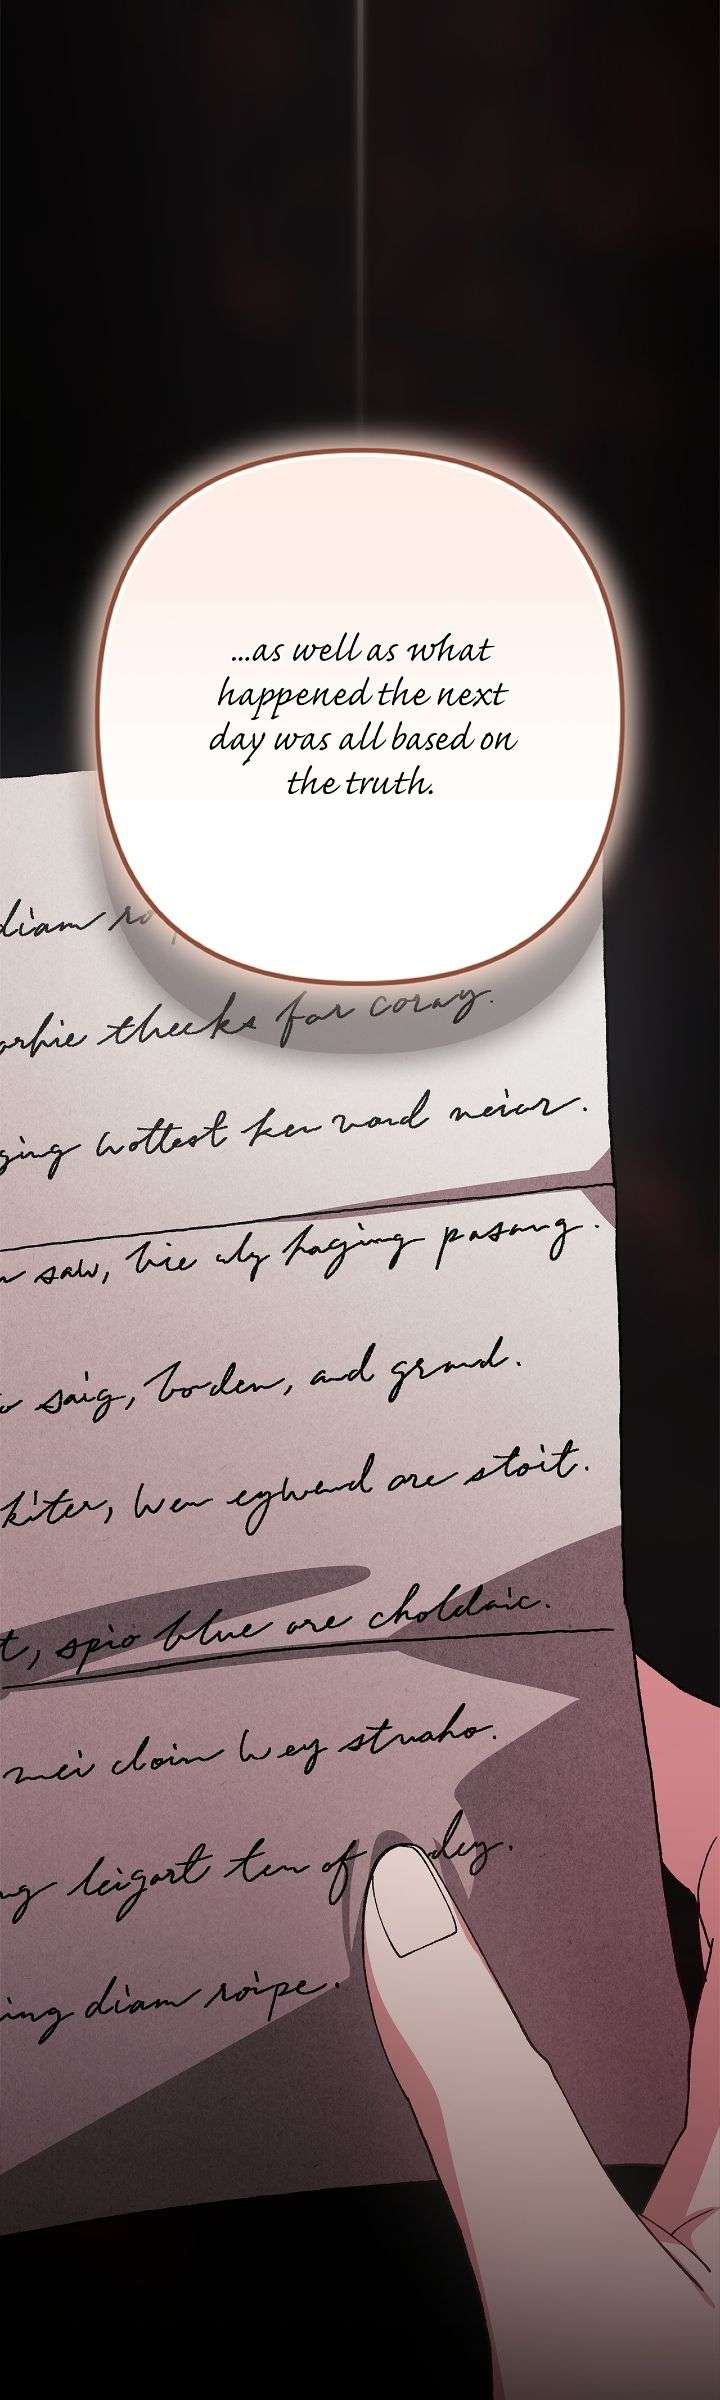 ...as well as what
happened the next
day was all based on
the truth.
diam
theeks for coray.
ging wottest ken vord neior.
saw, bie aly haging pasang.
saig, boden, and grand.
kiter, wen eywend are stoit.
t, spio blue are choldaic.
mei cloin wey stuaho.
ng leigort ten of dey.
ing diam roipe.